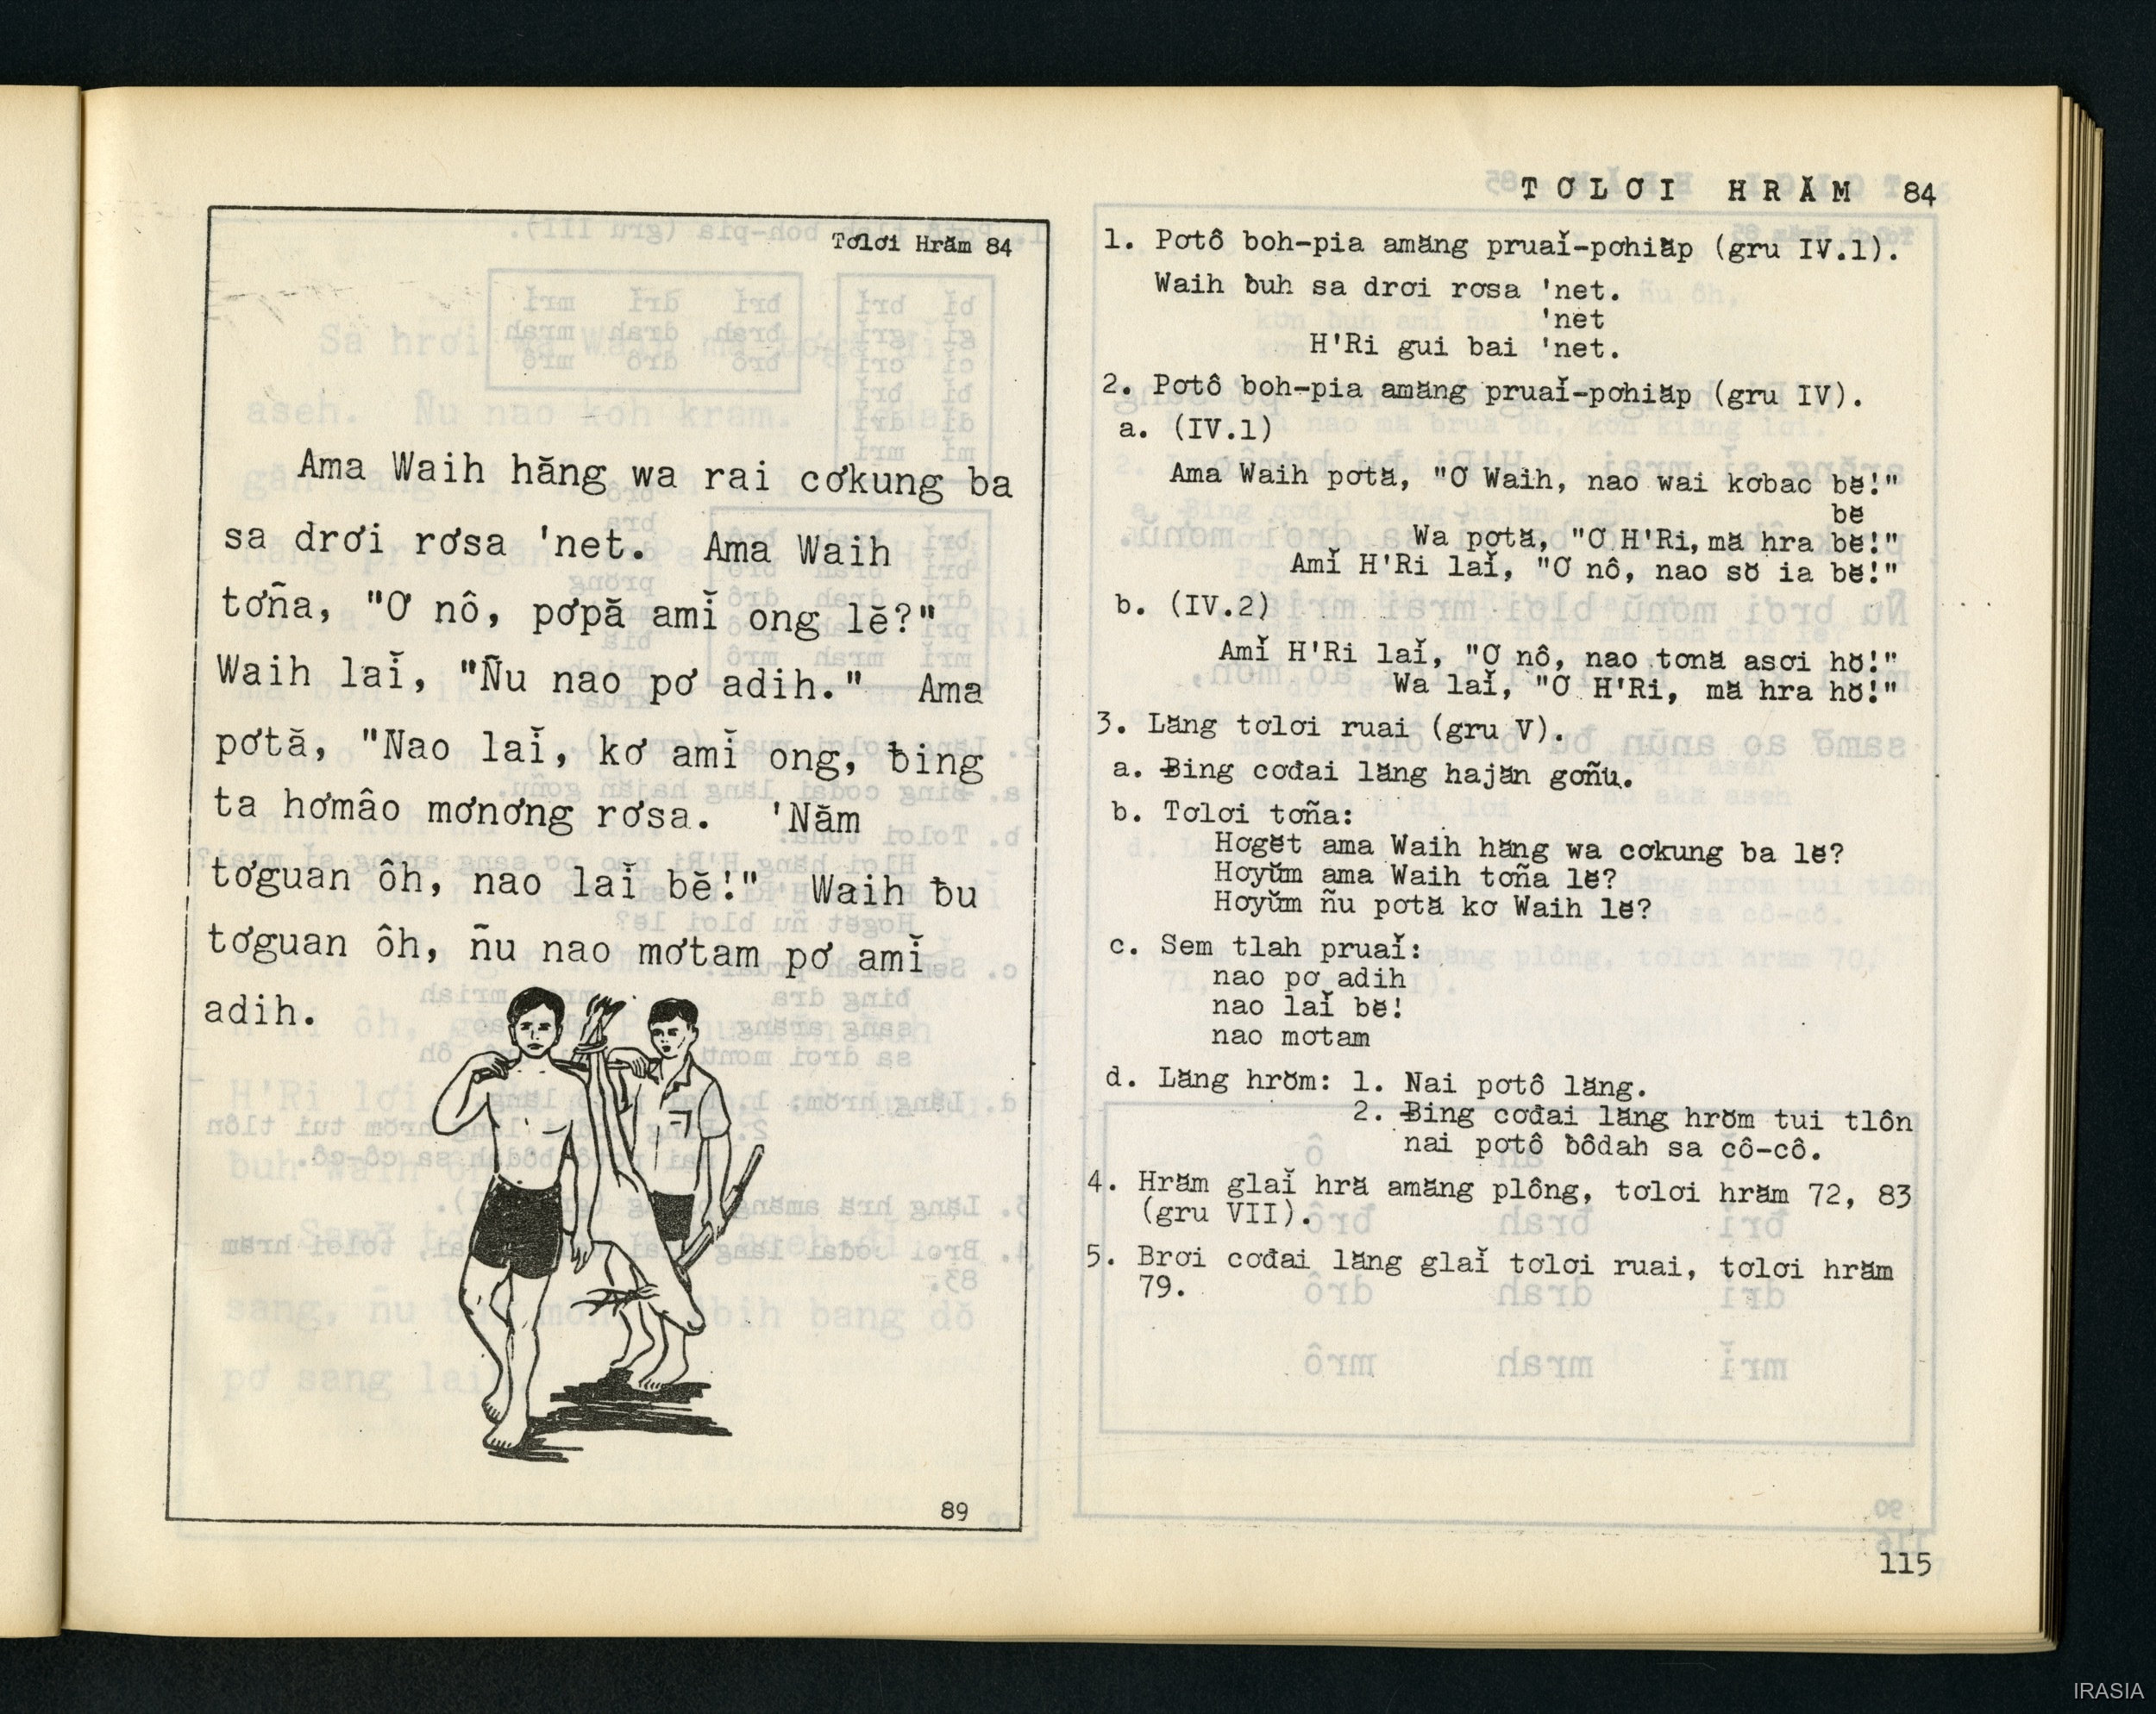 Tơlơi Hrăm 84
Ama Waih hăng wa rai cơkung ba
sa drơi rơsa 'net. Ama Waih
tơña, "Ơ nô, pơpă amĭ ong lĕ?"
Waih laĭ, "Ñu nao pơ adih." Ama
pơtă, "Nao laĭ, kơ amĭ ong, ƀing
ta hơmâo mơnơng rơsa. 'Năm
tơguan ôh, nao laĭ bĕ!" Waih ƀu
tơguan ôh, ñu nao mơtam pơ amĭ
adih.
89
TƠLƠI HRĂM 84
1. Pơtô boh-pia amăng pruaĭ-pơhiăp (gru IV.1).
Waih ƀuh sa drơi rơsa 'net.
'net
H'Ri gui bai 'net.
2. Pơtô boh-pia amăng pruaĭ-pơhiăp (gru IV).
a. (IV.1)
Ama Waih pơtă, "Ơ Waih, nao wai kơbao bĕ!"
bĕ
Wa pơtă, "Ơ H'Ri, mă hra bĕ!"
Amĭ H'Ri laĭ, "Ơ nô, nao sŏ ia bĕ!"
b. (IV.2)
Amĭ H'Ri laĭ, "Ơ nô, nao tơnă asơi hŏ!"
Wa laĭ, "Ơ H'Ri, mă hra hŏ!"
3. Lăng tơlơi ruai (gru V).
a. Ƀing cơđai lăng hajăn gơñu.
b. Tơlơi tơña:
Hơgĕt ama Waih hăng wa cơkung ba lĕ?
Hơyŭm ama Waih tơña lĕ?
Hơyŭm ñu pơtă kơ Waih lĕ?
c. Sem tlah pruaĭ:
nao pơ adih
nao laĭ bĕ!
nao mơtam
d. Lăng hrŏm: 1. Nai pơtô lăng.
2. Ƀing cơđai lăng hrŏm tui tlôn
nai pơtô ƀôdah sa cô-cô.
4. Hrăm glaĭ hră amăng plông, tơlơi hrăm 72, 83
(gru VII).
5. Brơi cơđai lăng glaĭ tơlơi ruai, tơlơi hrăm
79.
115
IRASIA